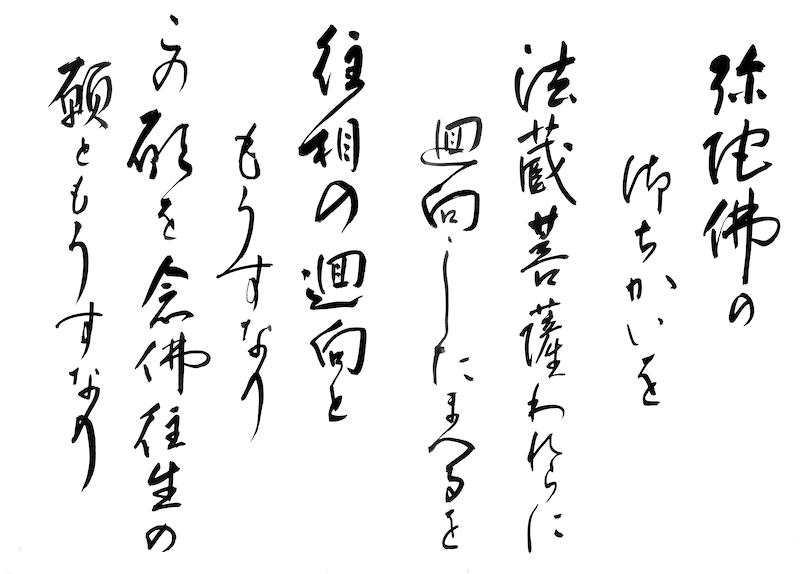 弥陀佛の
御ちかいを
法蔵菩薩われらに
迴向したまへるを
往相の迴向と
もうすなり
この願を念佛往生の
願ともうすなり